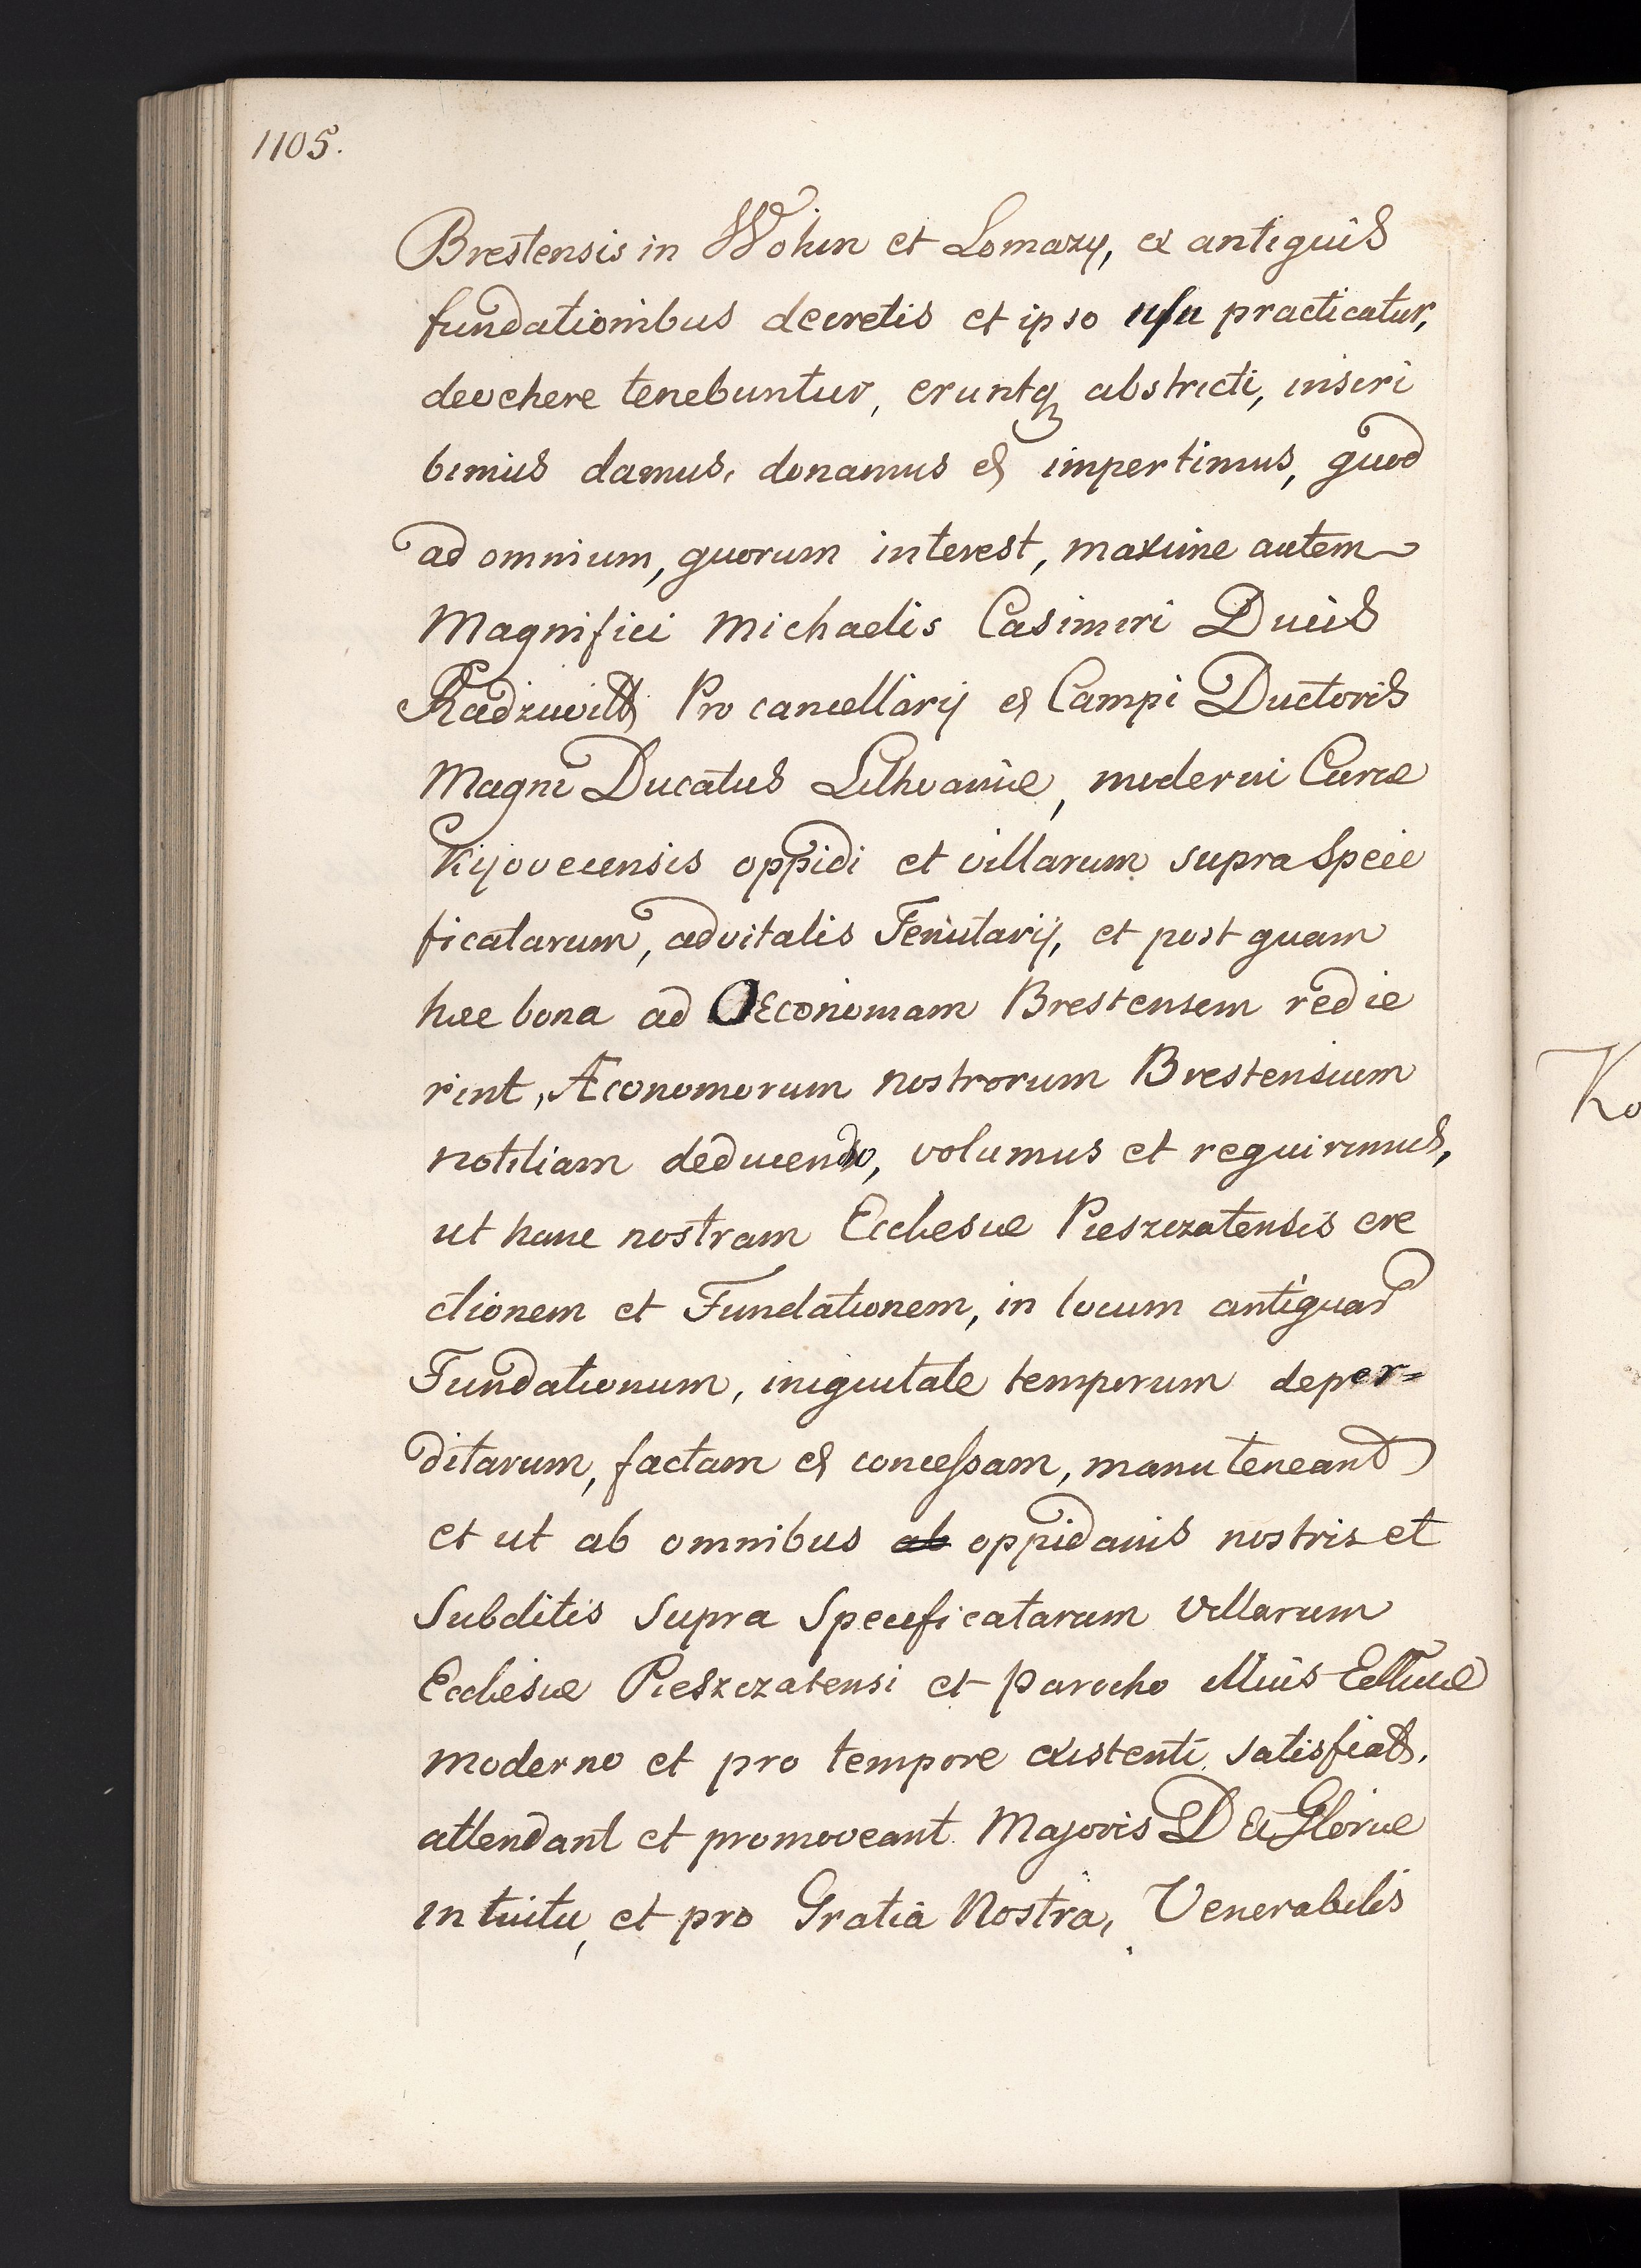 1105.
Brestensis in Wohin et Lomazy, ex antiquis
fundationibus decretis et ipso usu practicatur,
devehere tenebuntur, eruntq abstricti, inscri
bimus damus, donamus et impertimus, quod
ad omnium, quorum interest, maxime autem
Magnifici Michaelis Casimiri Ducis
Radziwill Pro cancellarij et Campi Ductoris
Magni Ducatus Lithvaniæ, moderni Curiæ
Kijovecensis oppidi et villarum supra Speci
ficatarum, advitalis Tenutarij, et post quam
hæc bona ad OEconomiam Brestensem redie
rint, Æconomorum nostrorum Brestensium
notitiam deducendo, volumus et requirimus,
ut hanc nostram Ecclesiæ Pieszczatensis ere
ctionem et Fundationem, in locum antiquar
Fundationum, iniquitate temporum deper=
ditarum, factam et concessam, manu teneant
et ut ab omnibus ab oppidanis nostris et
Subditis Supra Specificatarum Villarum
Ecclesiæ Pieszczatensi et parocho illius
moderno et pro tempore existenti satisfiat,
attendant et promoveant Majoris DEi Gloriæ
in tuitu, et pro Gratiâ Nostrâ, Venerabilis
Ko